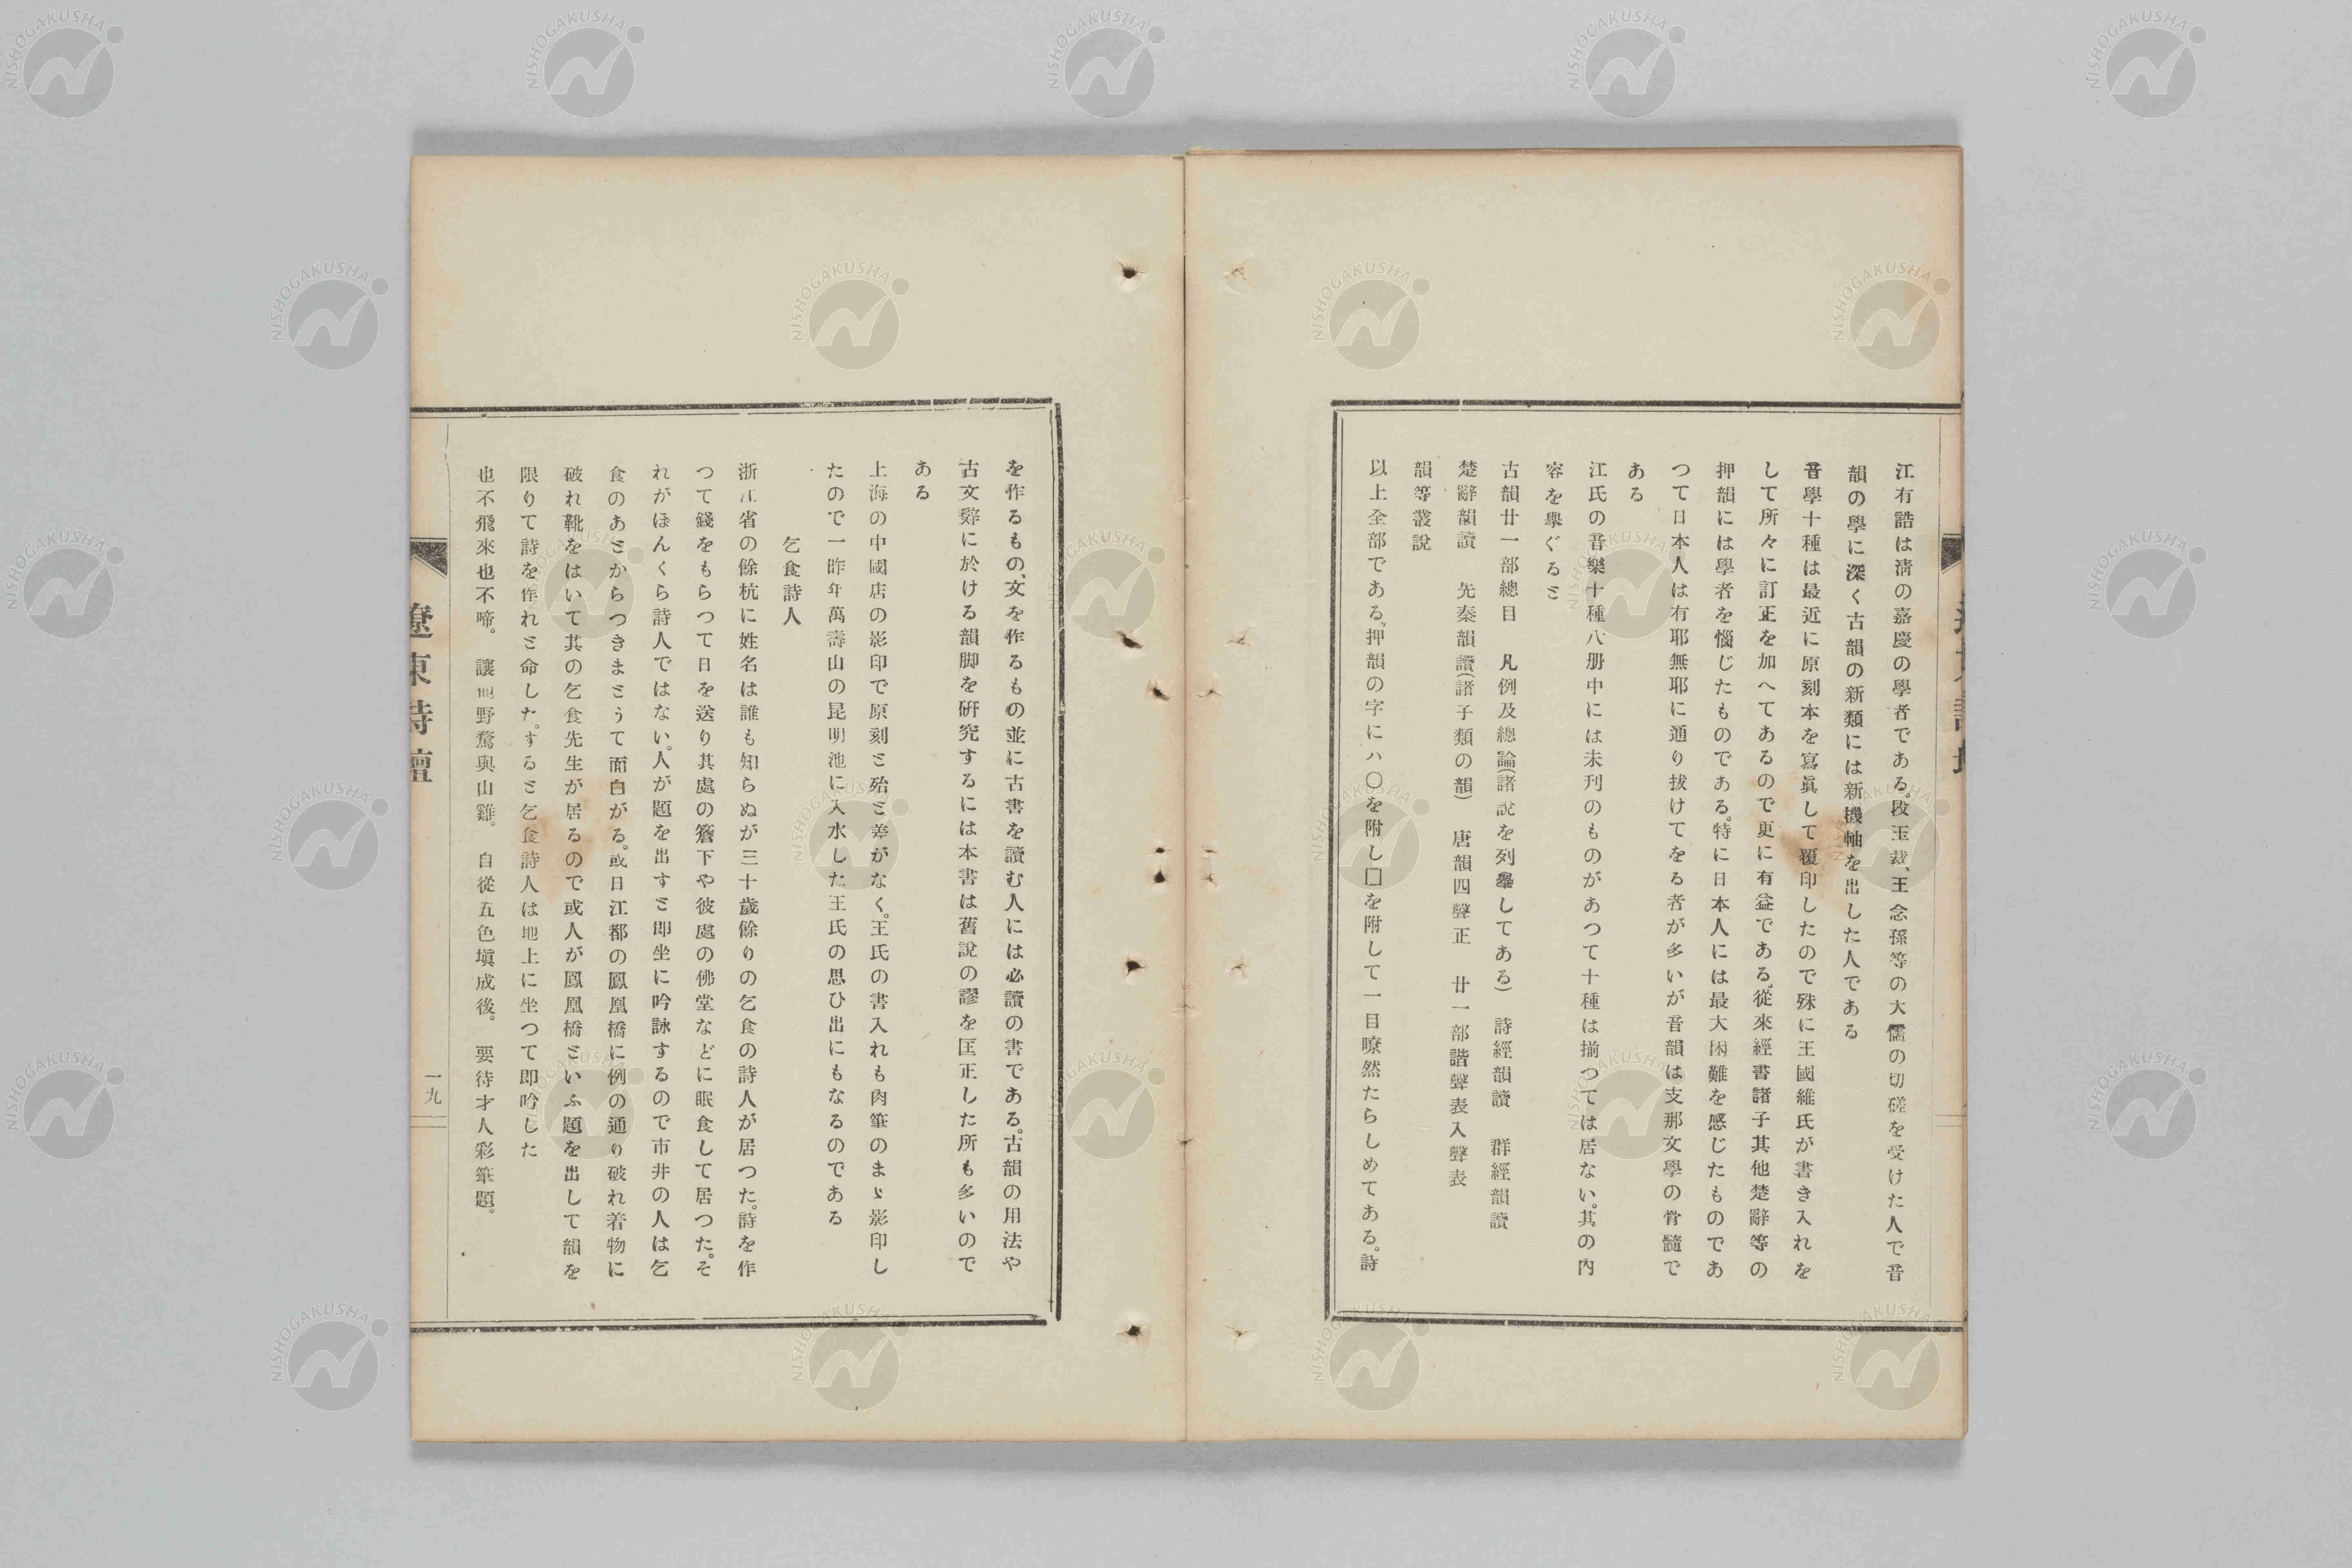 江有誥は淸の嘉慶の學者である。段玉裁、王念孫等の大儒の切磋を受けた人で音
韻の學に深く古韻の新類には新機軸を出した人である
音學十種は最近に原刻本を寫眞して覆印したので殊に王國維氏が書き入れを
して所々に訂正を加へてあるので更に有益である。從來經書諸子其他楚辭等の
押韻には學者を惱じたものである。特に日本人には最大困難を感じたものであ
つて日本人は有耶無耶に通り拔けてをる者が多いが音韻は支那文學の骨髓で
ある
江氏の音樂十種八册中には未刊のものがあつて十種は揃つては居ない。其の內
容を擧ぐるミ
古韻廿一部總目 凡例及總論(諸說を列擧してある) 詩經韻讀 群經韻讀
楚辭韻讀 先秦韻讀(諸子類の韻) 唐韻四聲正 廿一部諧聲表入聲表
韻等叢說
以上全部である。押韻の字にハ〇を附し□を附して一目瞭然たらしめてある。詩
を作るもの、文を作るもの並に古書を讀む人には必讀の書である。古韻の用法や
古文辭に於ける韻脚を硏究するには本書は舊說の謬を匡正した所も多いので
ある
上海の中國店の影印で原刻ミ殆ミ差がなく。王氏の書入れも肉筆のまゝ影印し
たので一昨年萬壽山の昆明池に入水した王氏の思ひ出にもなるのである
乞食詩人
浙江省の餘杭に姓名は誰も知らぬが三十歲餘りの乞食の詩人が居つた。詩を作
つて錢をもらつて日を送り其處の簷下や彼處の佛堂などに眠食して居つた。そ
れがほんくら詩人ではない。人が題を出すミ卽坐に吟詠するので市井の人は乞
食のあミからつきまミうて面白がる。或日江都の鳳凰橋に例の通り破れ着物に
破れ靴をはいて其の乞食先生が居るので或人が鳳凰橋ミいふ題を出して韻を
限りて詩を作れミ命した。するミ乞食詩人は地上に坐つて卽吟した
也不飛來也不啼。 讓他野鶩與山雞。 自從五色塡成後。 要待才人彩筆題。
遼東詩壇
一九